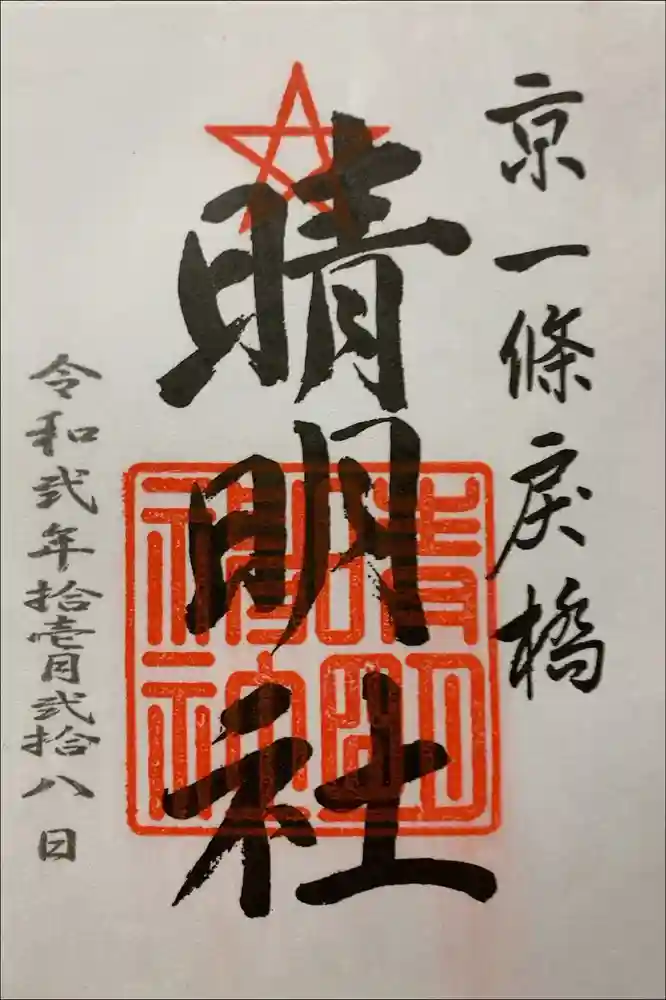 京一條戻橋
晴明社
令和弐年拾壱月弐拾八日